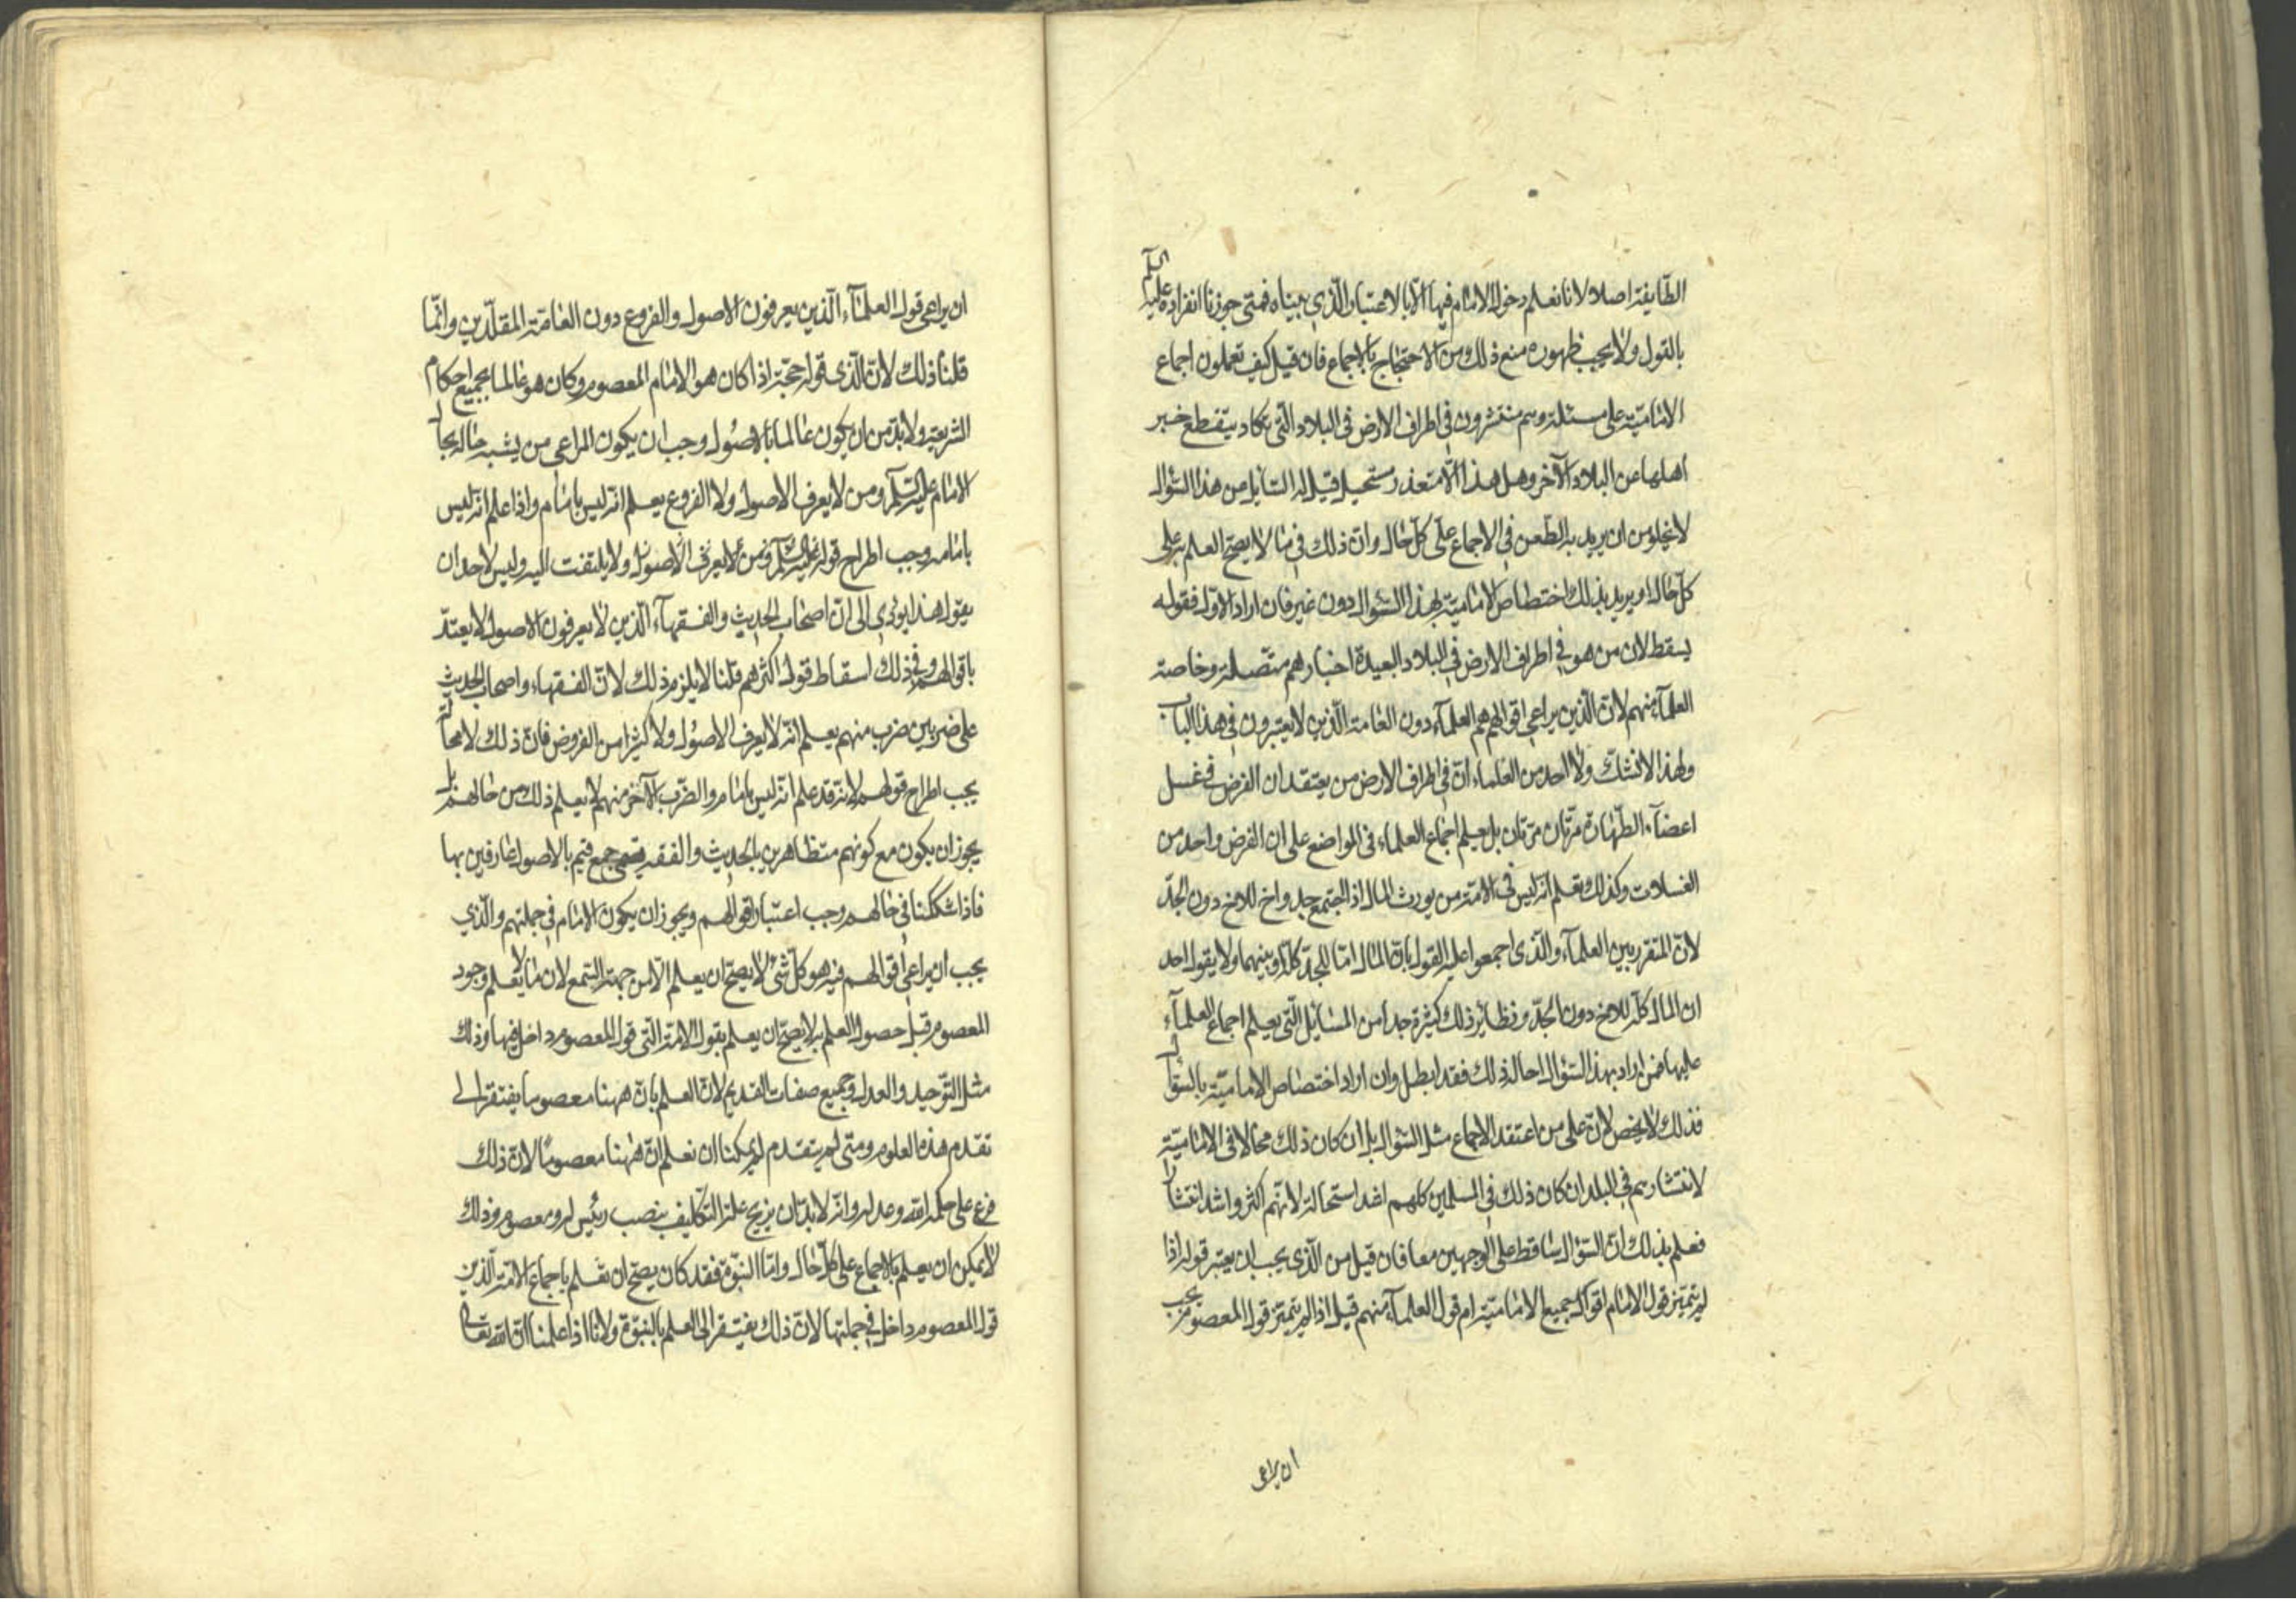 الطايفة اصلا لانا نعلم دخول الامام فيها الّا بالاعتبار الّذي بيناه فمتى جوزنا انفراده عليه السلم
بالقول ولا يجب ظهوره منع ذلك من الاحتجاج بالاجماع فان قيل كيف تعملون اجماع
الامامية على مسئلة وهم منتشرون في اطراف الارض في البلاد التي يكاد ينقطع خبر
اهلها عن البلاد الآخر وهل هذا الّا متعذر مستحيل قيل له السايل من هذا السّؤال
لا يخلو من ان يريد به الطّعن في الاجماع على كلّ حال وانّ ذلك في ما لا يصحّ العلم به على
كلّ حال او يريد بذلك اختصاص الامامية بهذا السّؤال دون غير فان اراد الاوّل فقوله
يسقط لان من هو في اطراف الارض في البلاد البعيدة اخبارهم متّصلة وخاصة
العلمآء منهم لانّ الّذين يراعي اقوالهم هم العلمآء دون العامة الّذين لا يعتبرون في هذا الباب
ولهذا لا نشكّ ولا احد من العلماء انّ في اطراف الارض من يعتقد ان الفرض في غسل
اعضآء الطّهارة مرّتان مرّتان بل يعلم اجماع العلماء في المواضع على ان الفرض واحد من
الغسلات وكذلك نعلم انّه ليس في الامّة من يورث المال اذا اجتمع جد واخ للاخ دون الجدّ
لانّ المتقرر بين العلمآء والّذي اجمعوا عليه القول بانّ المال امّا للجدّ كلّه او بينهما ولا يقول احد
ان المال كلّه للاخ دون الجدّ ونظاير ذلك كثيرة جدا من المسايل الّتي يعلم اجماع العلمآء
عليها فمن اراد بهذا السّؤال احالة ذلك فقد ابطل وان اراد اختصاص الاماميّة بالسّؤال
فذلك لا يخص لانّ على من اعتقد الاجماع مثل السّؤال بل ان كان ذلك محالا في الاماميّة
لانتشارهم في البلدان كان ذلك في المسلمين كلهم اشد استحالة لانّهم اكثر واشد انتشارا
فعلم بذلك انّ السّؤال ساقط على الوجهين معا فان قيل من الّذي يجب ان يعتبر قوله اذا
لم يتميّز قول الامام اقوال جميع الاماميّة ام قول العلمآء منهم قيل اذا لم يتميّز قول المعصوم يجب
ان يراعى
ان يراعى قول العلمآء الّذين يعرفون الاصول والفروع دون العامّة المقلّدين وانّما
قلنا ذلك لانّ الّذي قوله حجّة اذا كان هو الامام المعصوم وكان هو عالما بجميع احكام
الشريعة ولا بدّ من ان يكون عالما بالاصول وجب ان يكون المراعى من يشبه حاله بحال
الامام عليه السّلم ومن لا يعرف الاصول ولا الفروع يعلم انّه ليس بامام واذا علم انّه ليس
بامام وجب اطراح قوله فمن لا يعرف الاصول ولا يلتفت اليه وليس لاحد ان
يقول هذا يودي الى انّ اصحاب الحديث والفقهآء الّذين لا يعرفون الاصول لا يعتدّ
باقوالهم وفي ذلك اسقاط قول اكثرهم قلنا لا يلزم ذلك لانّ الفقهاء واصحاب الحديث
على ضربين ضرب منهم يعلم انّه لا يعرف الاصول ولا كثيرا من الفروض فانّ ذلك لا محالة
يجب اطراح قولهم لانّه قد علم انّه ليس بامام والضّرب الآخر منهم لا يعلم ذلك من حالهم بل
يجوز ان يكون مع كونهم متظاهرين بالحديث والفقه جمع قيم بالاصول عارفين بها
فاذا شككنا في حالهم وجب اعتبار اقوالهم ويجوز ان يكون الامام في جملتهم والّذي
يجب ان يراعى اقوالهم فيه هو كلّ شئ لا يصحّ ان يعلم الّا من جهة السّمع لان ما لا يعلم وجود
المعصوم قبل حصول العلم به لا يصحّ ان يعلم بقول الامّة الّتي قول المعصوم داخل فيها وذلك
مثل التّوحيد والعدل وجميع صفات القديم لانّ العلم بانّ ههنا معصوما يفتقر الى
تقدم هذه العلوم ومتى لم يتقدم لم يمكنا ان نعلم انّ ههنا معصوما لانّ ذلك
فرع على حكمة الله وعدله وانّه لا بدّ ان يزيح علة التّكليف بنصب رئيس لهم معصوم وذلك
لا يمكن ان يعلم بالاجماع على كلّ حال وامّا النبوّة فقد كان يصحّ ان نعلم باجماع الامّة الّذين
قول المعصوم داخل في جملتها لانّ ذلك يفتقر الى العلم بالنبوّة ولانا اذا علمنا انّ الله تعالى